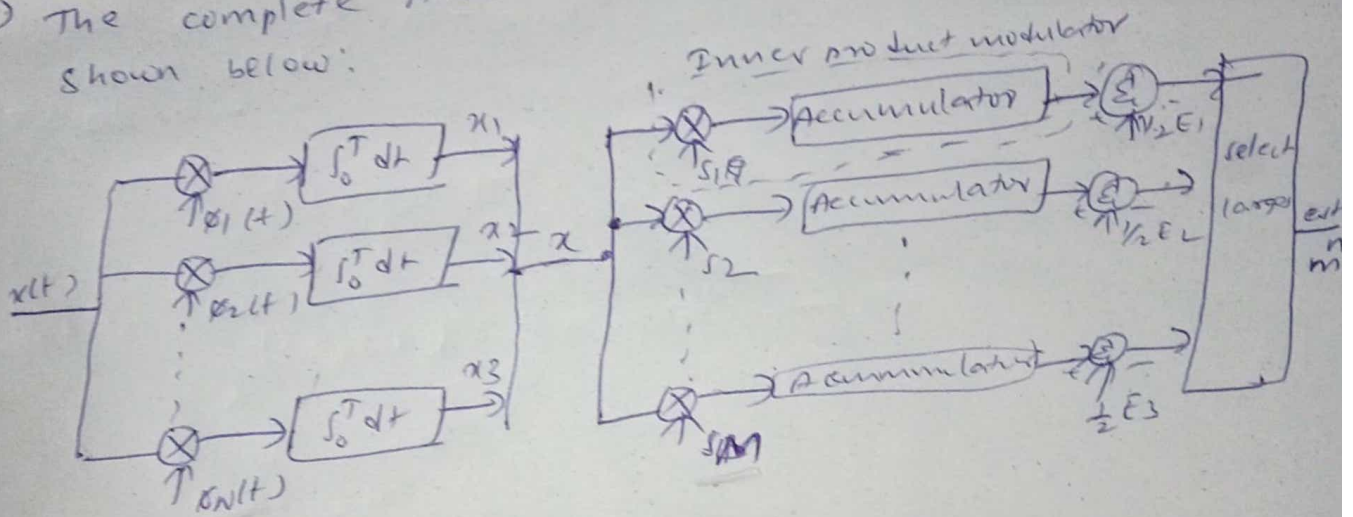 The complete
shown below:
Inner product modulator
x(t)
ϕ1(t)
∫₀ᵀ dt
x1
ϕ2(t)
∫₀ᵀ dt
x2
ϕN(t)
∫₀ᵀ dt
x3
x
S1
Accumulator
Σ
1/2 E1
S2
Accumulator
Σ
1/2 E2
SM
Accummulator
Σ
1/2 E3
select
m